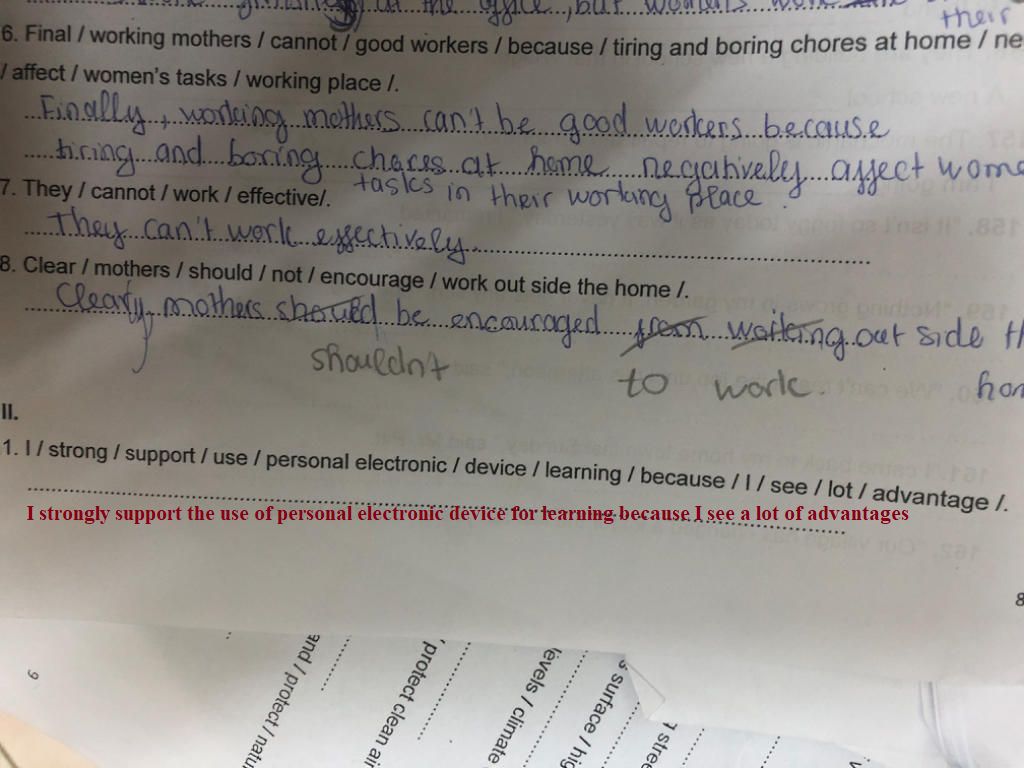 at the office, but women's work
their
6. Final / working mothers / cannot / good workers / because / tiring and boring chores at home / ne
/ affect / women's tasks / working place /.
Finally, working mothers can't be good workers because
tiring and boring chores at home negatively affect wome
tasks in their working place.
7. They / cannot / work / effective/.
They can't work effectively
8. Clear / mothers / should / not / encourage / work out side the home /.
Clearly, mothers should be encouraged from working out side th
shouldn't to work. hom
II.
1. I / strong / support / use / personal electronic / device / learning / because / I / see / lot / advantage /.
I strongly support the use of personal electronic device for learning because I see a lot of advantages
8
9
and / protect / natu
/ protect clean air
levels / climate
s surface / hig